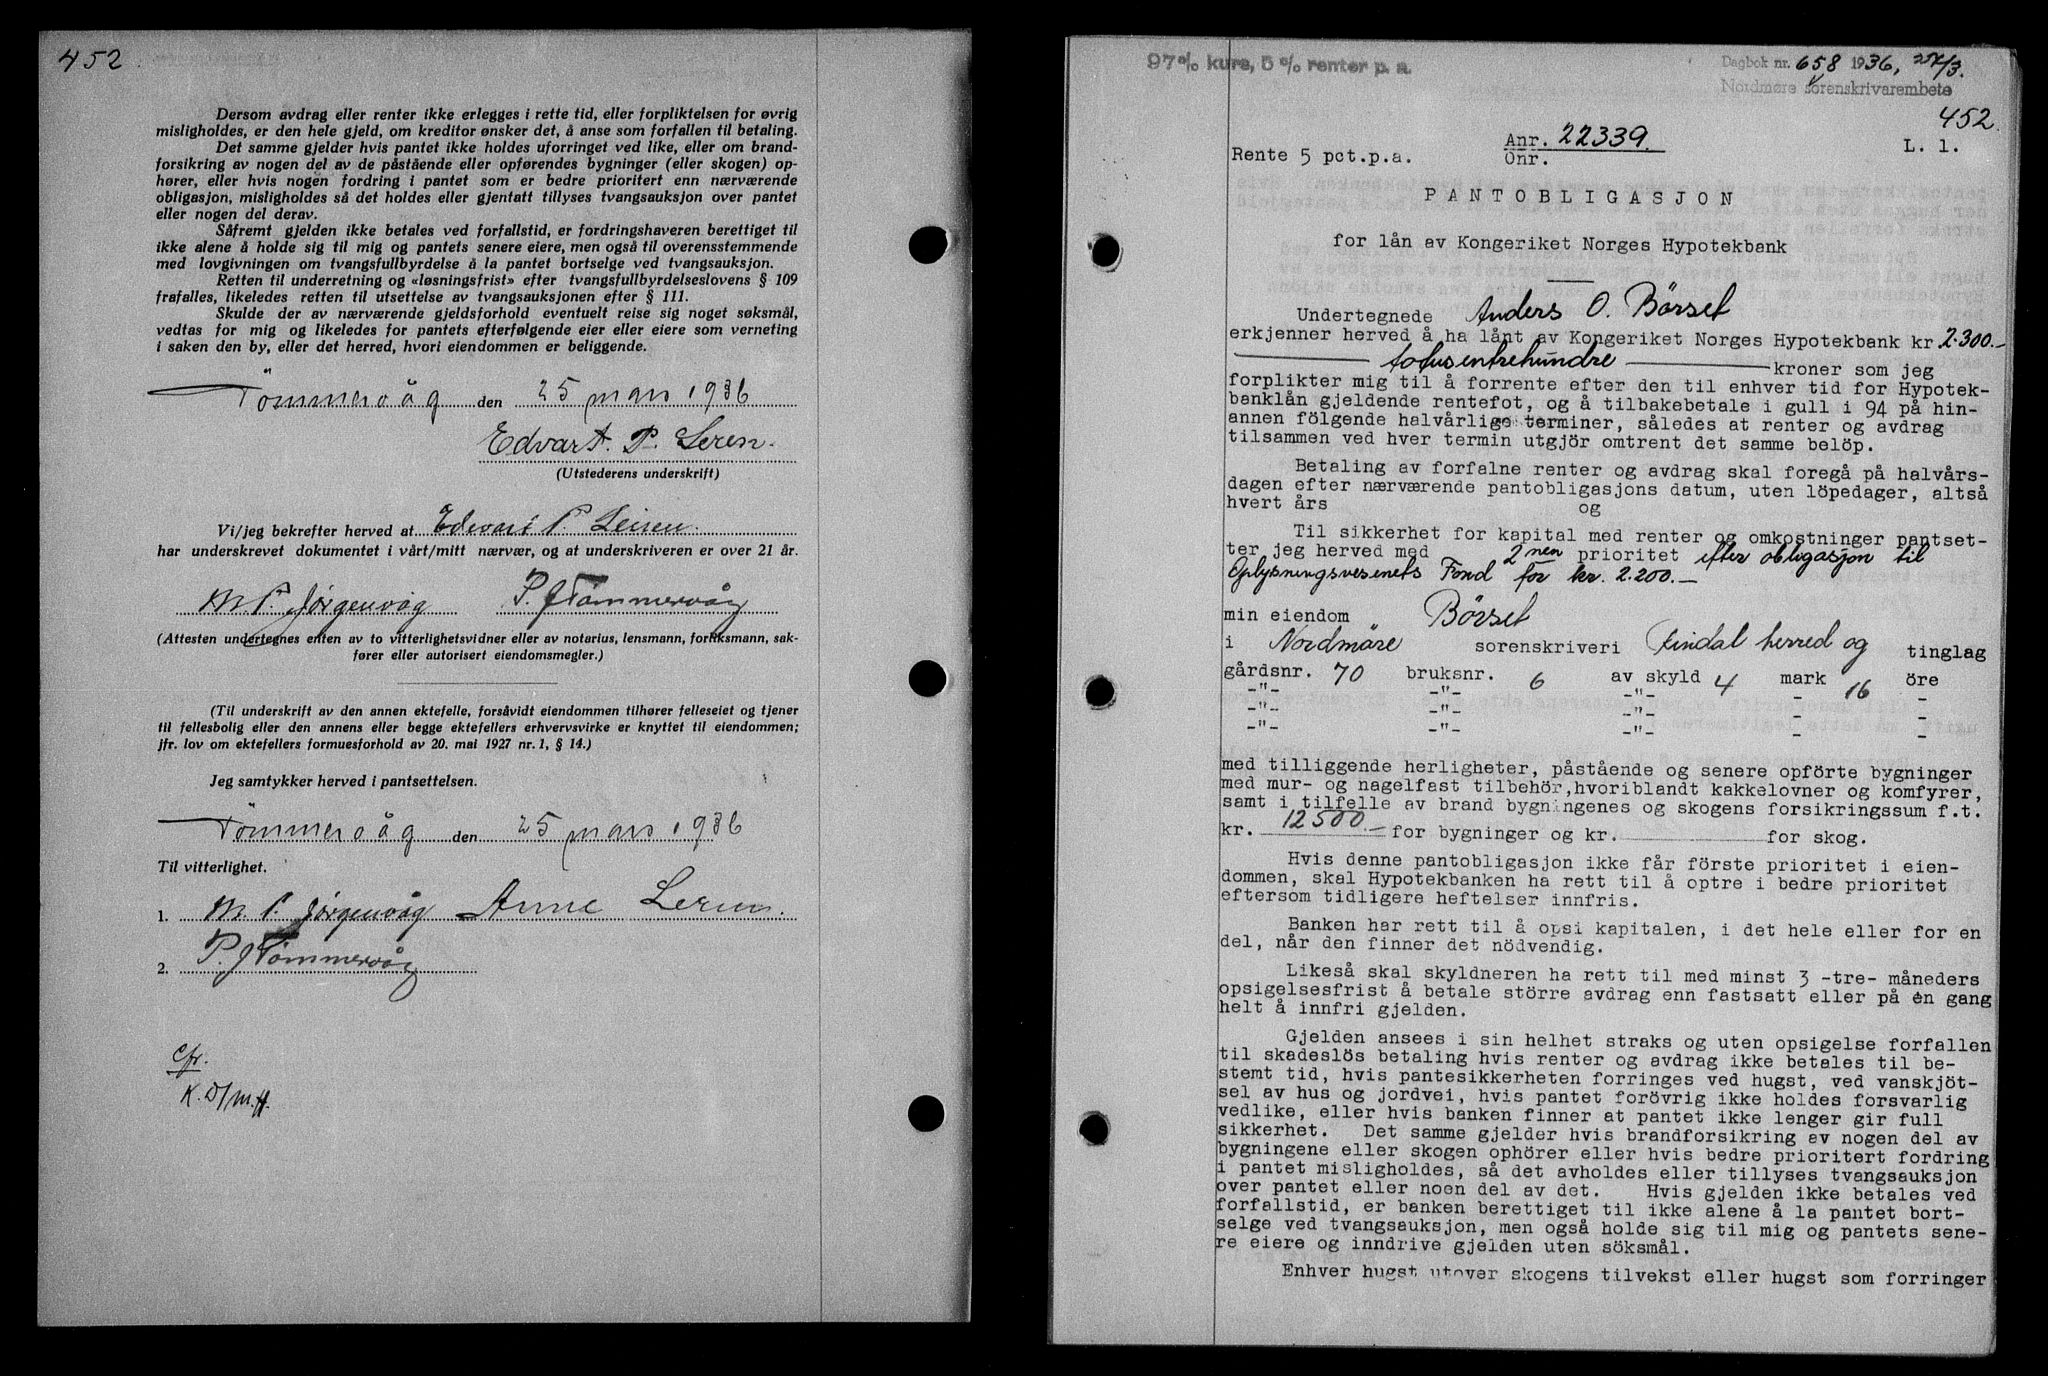 452.
Dersom avdrag eller renter ikke erlegges i rette tid, eller forpliktelsen for øvrig
misligholdes, er den hele gjeld, om kreditor ønsker det, å anse som forfallen til betaling.
Det samme gjelder hvis pantet ikke holdes uforringet ved like, eller om brand-
forsikring av nogen del av de påstående eller opførendes bygninger (eller skogen) op-
hører, eller hvis nogen fordring i pantet som er bedre prioritert enn nærværende
obligasjon, misligholdes så det holdes eller gjentatt tillyses tvangsauksjon over pantet
eller nogen del derav.
Såfremt gjelden ikke betales ved forfallstid, er fordringshaveren berettiget til
ikke alene å holde sig til mig og pantets senere eiere, men også til overensstemmende
med lovgivningen om tvangsfullbyrdelse å la pantet bortselge ved tvangsauksjon.
Retten til underretning og «løsningsfrist» efter tvangsfullbyrdelseslovens § 109
frafalles, likeledes retten til utsettelse av tvangsauksjonen efter § 111.
Skulde der av nærværende gjeldsforhold eventuelt reise sig noget søksmål,
vedtas for mig og likeledes for pantets efterfølgende eier eller eiere som verneting
i saken den by, eller det herred, hvori eiendommen er beliggende.
Tømmervåg den 25 mars 1936
Edvart P. Leren.
(Utstederens underskrift)
Vi/jeg bekrefter herved at Edvart P. Leiren.
har underskrevet dokumentet i vårt/mitt nærvær, og at underskriveren er over 21 år.
M. P. Jørgenvåg P. J Tømmervåg
(Attesten undertegnes enten av to vitterlighetsvidner eller av notarius, lensmann, forliksmann, sak-
fører eller autorisert eiendomsmegler.)
(Til underskrift av den annen ektefelle, forsåvidt eiendommen tilhører felleseiet og tjener
til fellesbolig eller den annens eller begge ektefellers erhvervsvirke er knyttet til eiendommen;
jfr. lov om ektefellers formuesforhold av 20. mai 1927 nr. 1, § 14.)
Jeg samtykker herved i pantsettelsen.
Tømmervåg den 25 mars 1936
Til vitterlighet.
1. M. P. Jørgenvåg Anne Leren.
2. P. J Tømmervåg
cfr.
97% kurs, 5% renter p. a.
Dagbok nr. 658 1936, 27/3.
Nordmøre sorenskrivarembete
452.
Anr. 22339.
Rente 5 pct.p.a. Onr. L. 1.
PANTOBLIGASJON
for lån av Kongeriket Norges Hypotekbank
Undertegnede Anders O. Börset
erkjenner herved å ha lånt av Kongeriket Norges Hypotekbank kr 2.300.-
totusentrehundre kroner som jeg
forplikter mig til å forrente efter den til enhver tid for Hypotek-
banklån gjeldende rentefot, og å tilbakebetale i gull i 94 på hin-
annen fölgende halvårlige terminer, således at renter og avdrag
tilsammen ved hver termin utgjör omtrent det samme belöp.
Betaling av forfalne renter og avdrag skal foregå på halvårs-
dagen efter nærværende pantobligasjons datum, uten löpedager, altså
hvert års og
Til sikkerhet for kapital med renter og omkostninger pantset-
ter jeg herved med 2nen prioritet efter obligasjon til
Oplysningsvesenets Fond for kr. 2.200.-
min eiendom Börset
i Nordmöre sorenskriveri Rindal herred og tinglag
gårdsnr. 70 bruksnr. 6 av skyld 4 mark 16 öre
-"- -"- -"- - -
-"- -"- -"- - -
-"- -"- -"- - -
med tilliggende herligheter, påstående og senere opförte bygninger
med mur- og nagelfast tilbehör,hvoriblandt kakkelovner og komfyrer,
samt i tilfelle av brand bygningenes og skogens forsikringssum f.t.
kr. 12500.- for bygninger og kr. for skog.
Hvis denne pantobligasjon ikke får förste prioritet i eien-
dommen, skal Hypotekbanken ha rett til å optre i bedre prioritet
eftersom tidligere heftelser innfris.
Banken har rett til å opsi kapitalen, i det hele eller for en
del, når den finner det nödvendig.
Likeså skal skyldneren ha rett til med minst 3 -tre- måneders
opsigelsesfrist å betale större avdrag enn fastsatt eller på én gang
helt å innfri gjelden.
Gjelden ansees i sin helhet straks og uten opsigelse forfallen
til skadeslös betaling hvis renter og avdrag ikke betales til be-
stemt tid, hvis pantesikkerheten forringes ved hugst, ved vanskjöt-
sel av hus og jordvei, hvis pantet forövrig ikke holdes forsvarlig
vedlike, eller hvis banken finner at pantet ikke lenger gir full
sikkerhet. Det samme gjelder hvis brandforsikring av nogen del av
bygningene eller skogen ophörer eller hvis bedre prioritert fordring
i pantet misligholdes, så det avholdes eller tillyses tvangsauksjon
over pantet eller noen del av det. Hvis gjelden ikke betales ved
forfallstid, er banken berettiget til ikke alene å la pantet bort-
selge ved tvangsauksjon, men også holde sig til mig og pantets sene-
re eiere og inndrive gjelden uten söksmål.
Enhver hugst utover skogens tilvekst eller hugst som forringer